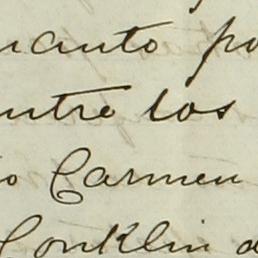 uanto po
ntre los
o Carmen
Conklin a